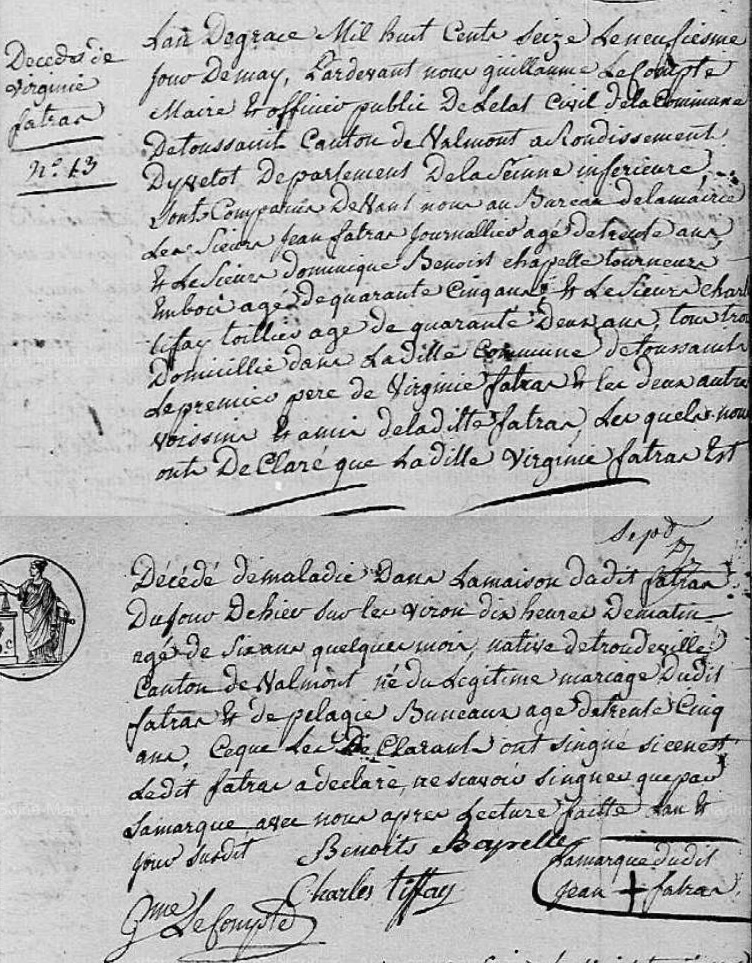 Decedes de
Virginie
fatras
n.o 13
Lan Degrace Mil huit Cents Seize Leneufiesme
jour Demay, Pardevant nous guillaume LeCompte
Maire & officier public De Letat Civil delaCommune
Detoussaint Canton de Valmont aRondissement
Dyvetot Departement DelaSeinne inferieure,
Sont Comparus DeVant nous au Bureau delamairie
Les Sieurs jean fatras journallier agé detrente ans
& LeSieurs dominique Benoist chapelle tourneurs
Enbois agé dequarante Cinqans, & LeSieurs charl
tifay toillier age de quarante Deux ans, tous troi
Domicillié dans Laditte Commune detoussaints
Lepremier pere de Virginie fatras & les deux autres
voissins & amis deladitte fatras, Les quels nous
onts DeClaré que Laditte Virginie fatras Est
Décédé demaladie Dans Lamaison dudit fatras
Dujour Dehier sur les viron dix heures Dematin
agé de Six ans quelques mois, native detroudeville
Canton de Valmont né du Legitime mariage Dudit
fatras & de pelagie Buneaux age detrente Cinq
ans, Ceque Les DeClarants ont singné sicenest
Ledit fatras adeclaré, ne scavoir singner que par
Samarque avec nous apres Lecture faitte Lan &
jour susdit
Benoits
Charles tiffay
Lamarque dudit
jean + fatras
Gme LeCompte